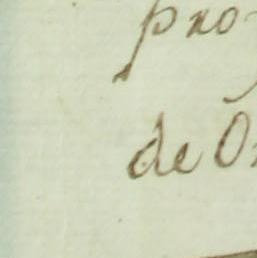 pro
de O